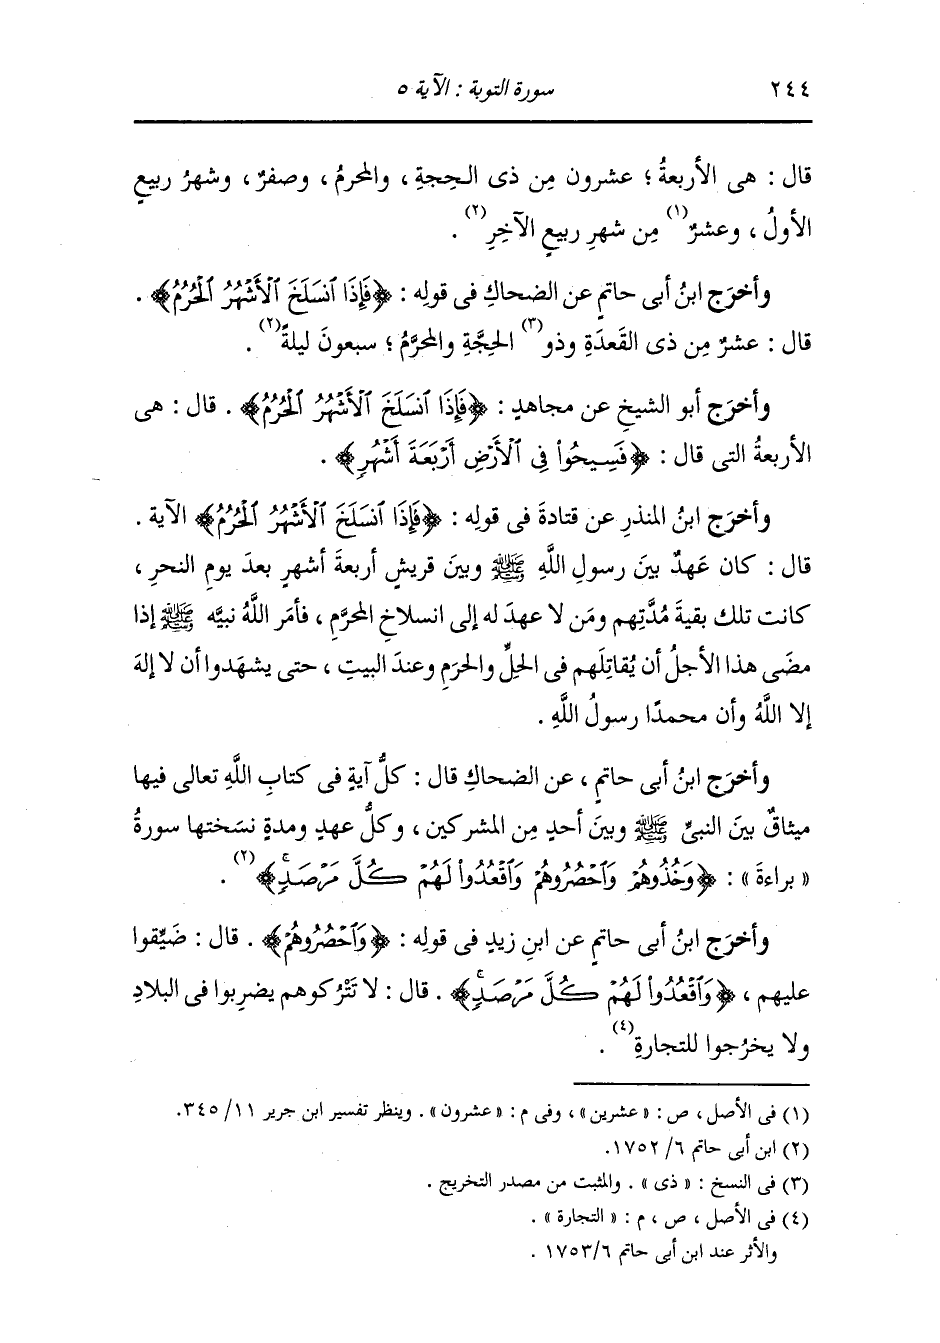 ٢٤٤ سورة التوبة : الآية ٥
قال : هى الأربعةُ ؛ عشرون مِن ذى الحِجةِ ، والمحرمُ ، وصفرٌ ، وشهرُ ربيعٍ
الأولُ ، وعشرٌ(١) مِن شهرِ ربيعٍ الآخِرِ(٢) .
وأخرَج ابنُ أبى حاتمٍ عن الضحاكِ فى قولِه : ﴿فَإِذَا ٱنسَلَخَ ٱلْأَشْهُرُ ٱلْحُرُمُ﴾ .
قال : عشرٌ مِن ذى القَعدَةِ وذو(٣) الحِجَّةِ والمحرَّمُ ؛ سبعونَ ليلةً(٢) .
وأخرَج أبو الشيخِ عن مجاهدٍ : ﴿فَإِذَا ٱنسَلَخَ ٱلْأَشْهُرُ ٱلْحُرُمُ﴾ . قال : هى
الأربعةُ التى قال : ﴿فَسِيحُوا۟ فِى ٱلْأَرْضِ أَرْبَعَةَ أَشْهُرٍ﴾ .
وأخرَج ابنُ المنذرِ عن قتادةَ فى قولِه : ﴿فَإِذَا ٱنسَلَخَ ٱلْأَشْهُرُ ٱلْحُرُمُ﴾ الآية .
قال : كان عَهدٌ بينَ رسولِ اللَّهِ ﷺ وبينَ قريشٍ أربعةَ أشهرٍ بعدَ يومِ النحرِ ،
كانت تلك بقيةَ مُدَّتِهم ومَن لا عهدَ له إلى انسلاخِ المحرَّمِ ، فأمَر اللَّهُ نبيَّه ﷺ إذا
مضَى هذا الأجلُ أن يُقاتِلَهم فى الحِلِّ والحرَمِ وعندَ البيتِ ، حتى يشهَدوا أن لا إلهَ
إلا اللَّهُ وأن محمدًا رسولُ اللَّهِ .
وأخرَج ابنُ أبى حاتمٍ ، عن الضحاكِ قال : كلُّ آيةٍ فى كتابِ اللَّهِ تعالى فيها
ميثاقٌ بينَ النبىِّ ﷺ وبينَ أحدٍ مِن المشركين ، وكلُّ عهدٍ ومدةٍ نسَختها سورةُ
« براءةَ » : ﴿وَخُذُوهُمْ وَٱحْصُرُوهُمْ وَٱقْعُدُوا۟ لَهُمْ كُلَّ مَرْصَدٍۚ﴾(٢) .
وأخرَج ابنُ أبى حاتمٍ عن ابنِ زيدٍ فى قولِه : ﴿وَٱحْصُرُوهُمْ﴾ . قال : ضَيِّقوا
عليهم ، ﴿وَٱقْعُدُوا۟ لَهُمْ كُلَّ مَرْصَدٍۚ﴾ . قال : لا تَتْرُكوهم يضرِبوا فى البلادِ
ولا يخرُجوا للتجارةِ(٤) .
(١) فى الأصل ، ص : « عشرين » ، وفى م : « عشرون » . وينظر تفسير ابن جرير ١١/ ٣٤٥.
(٢) ابن أبى حاتم ٦/ ١٧٥٢.
(٣) فى النسخ : « ذى » . والمثبت من مصدر التخريج .
(٤) فى الأصل ، ص ، م : « التجارة » .
والأثر عند ابن أبى حاتم ١٧٥٣/٦ .